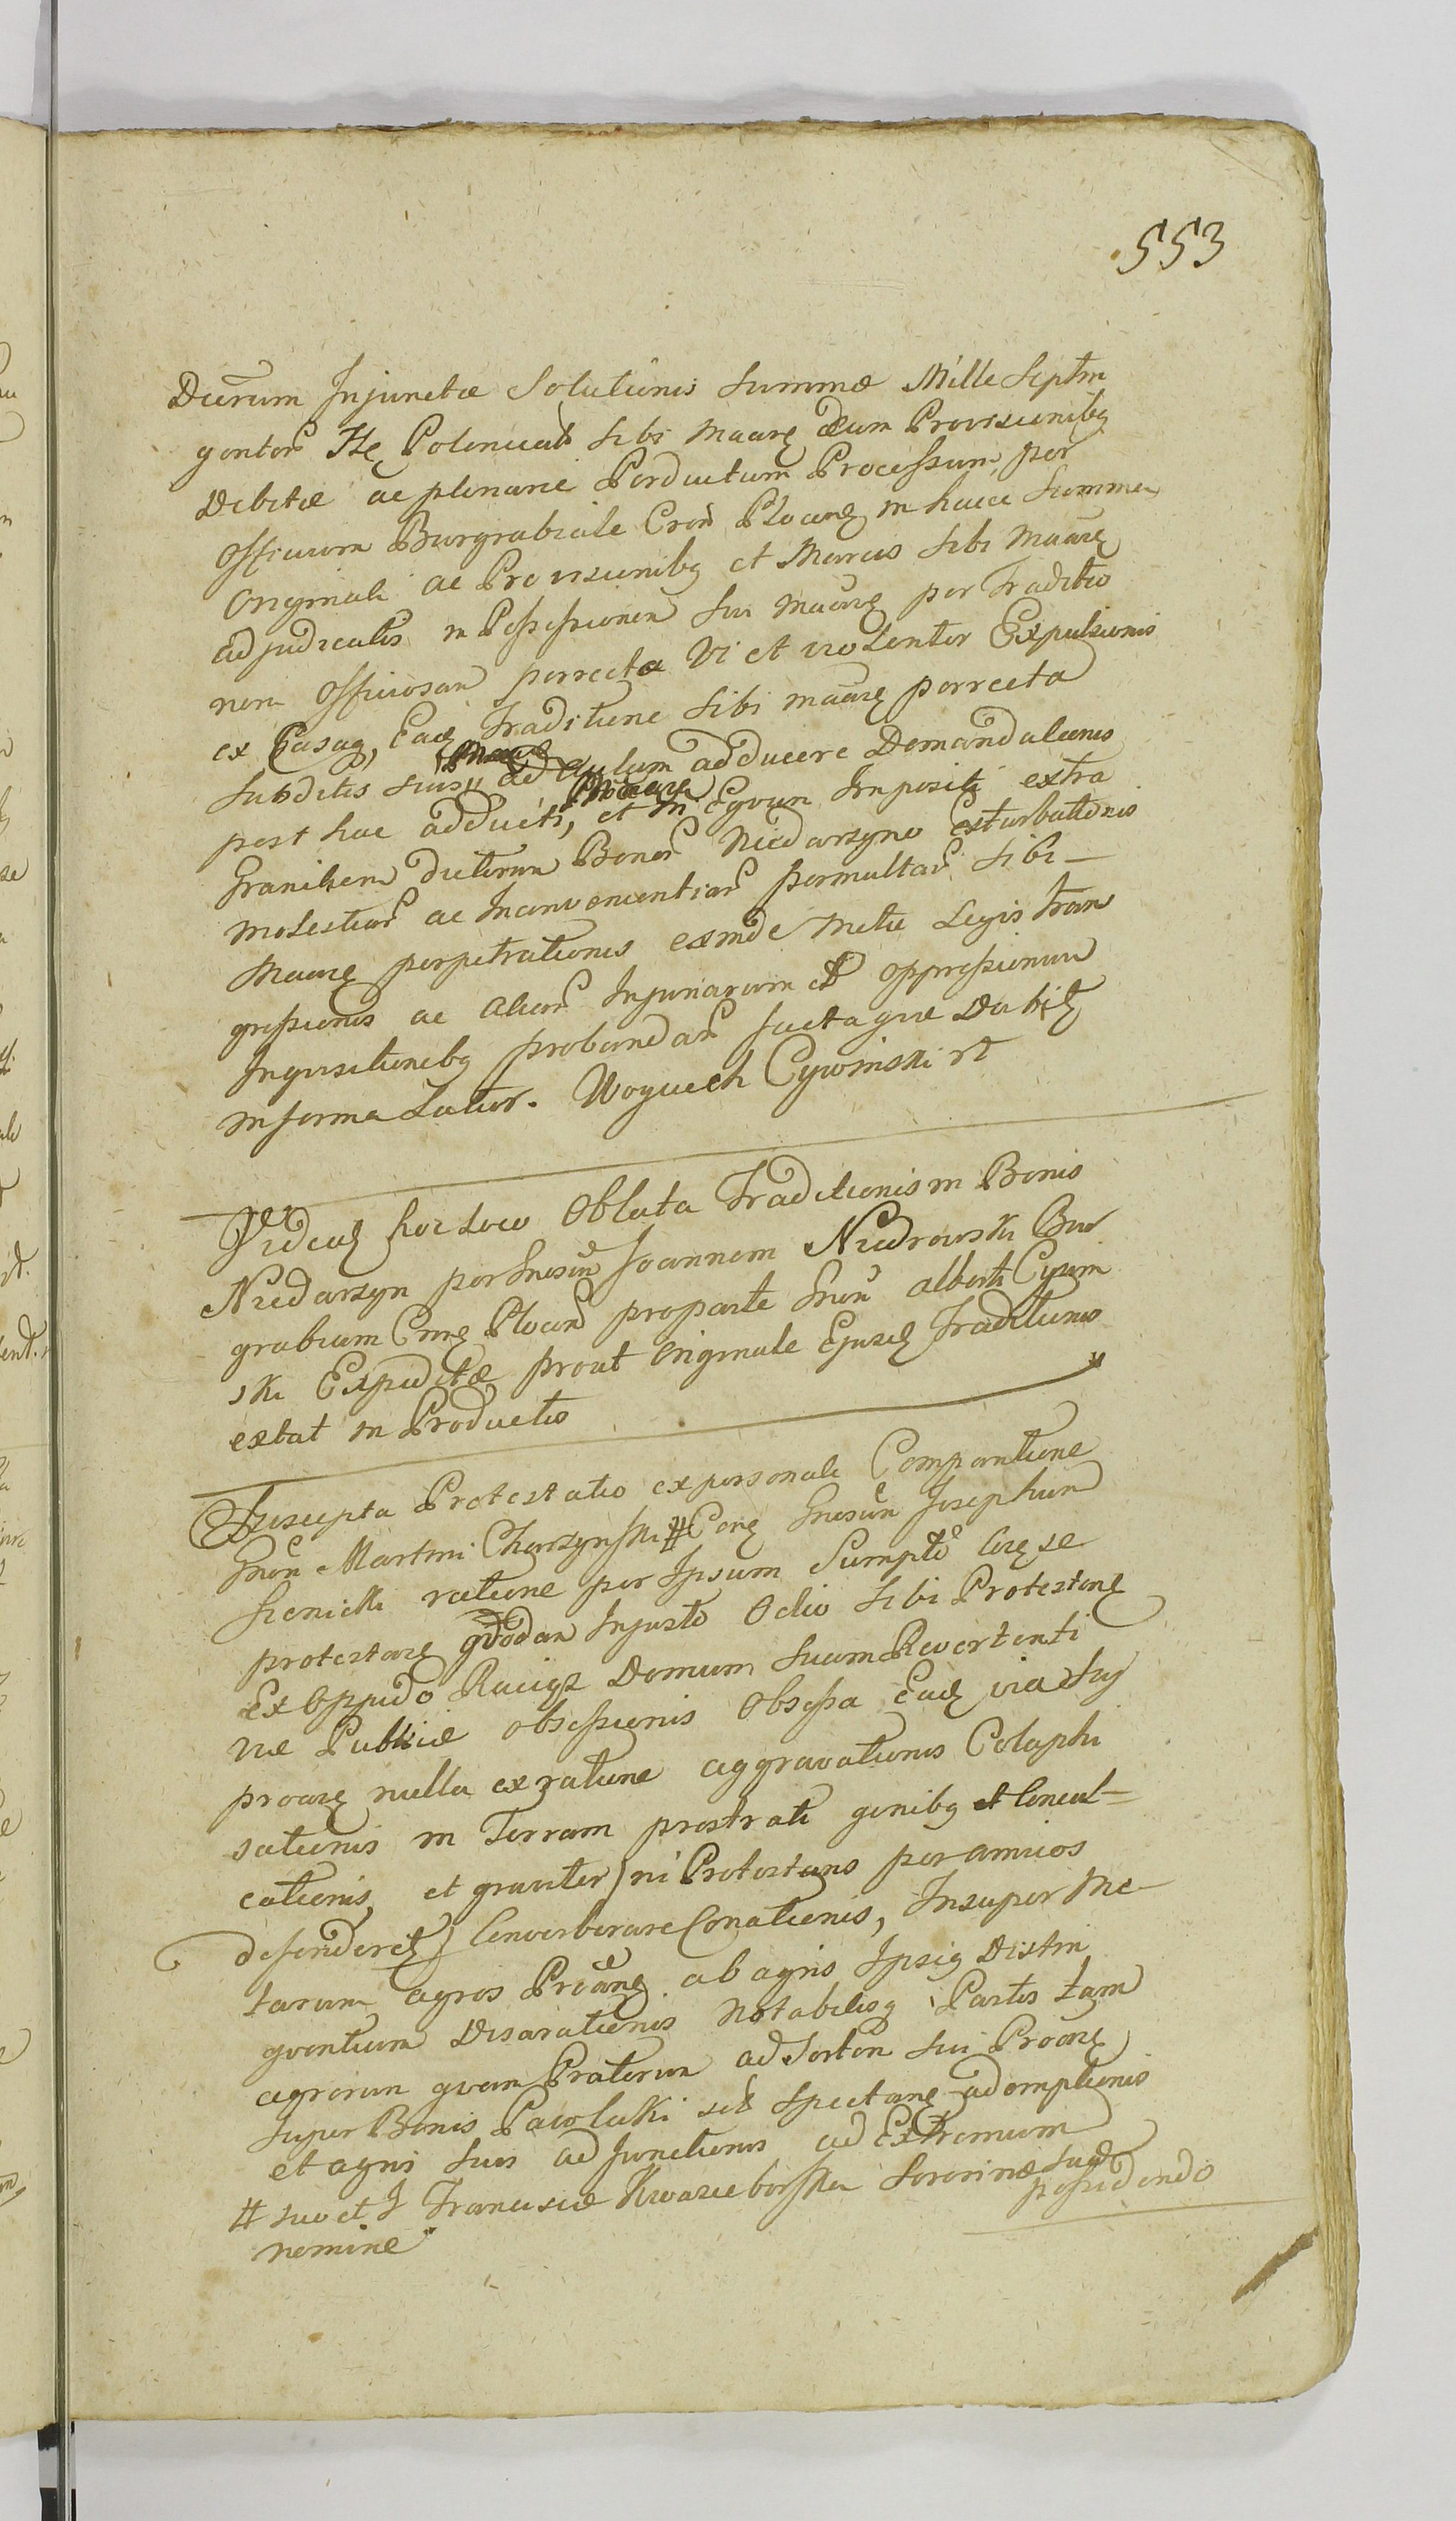 553
Duarum Injunctæ Solutionis Summæ Mille Septin
gentor Flę Polonical Sibi Maarę cum Provisionibq
Debitæ ac plenarie Perductum Processum per
Officium Burgrabiale Cron Plocenę in hacce Summa
Originali ac Provisionibq et Marcis Sibi Maarę
adjudicatis in Possessionem Sui Maarę per Traditio
nem Officiosam porrecta Vi et violenter Expulsionis
ex Casaq, Eadę Traditione Sibi maarę porrecta
Subditis suis Maarę ad Aulam adducere Demandationis
post hac adducti, et in Eqvum Impositi extra
Granitiem dictorum Bonor Niedarzyno Exturbationis
Molestiar ac Inconvenientiar permultar Sibi –
Maarę perpetrationis exinde Metæ Legis tran
gressionis ac aliar Injuriarum et oppressionum
Inqvisitionibq probandar factaqve Dabitę
in forma Latior. Woyciech Cywinski rt
Videatę hoc Loco Oblata Traditionis in Bonis
Niedarzyn per Gnosum Joannem Niedrowski Bur
grabium Cnnę Plocen pro parte Gnon Alberti Cywin
ski Expeditæ prout Originale Ejusdę Traditionis
extat in Productis
Suscepta Protestatio ex personali Comparitione
Gnon Martini Charzynski # Conę Gnosum Josephum
Sienicki ratione per Ipsum Sumpto corę se
protestarę qvodam Injusto Odio Sibi Protestanę
Ex Oppido Raciąz Domum Suam Revertenti
Viæ Publicæ obsessionis Obsessa Eadę via Suy
proarę nulla ex ratione aggravationis Colaphi
sationis in Terram prostrati genibq et Concul=
cationis, et graviter) ni Protestans per amicos
defenderetę) Converberare Conationis, Insuper Me
tarum agros Proanę ab agris Ipsiq Distin
gventium Disarationis Notabilisq Partis tam
agrorum qvam Pratorum ad Sortem Sui Proarę
Super Bonis Pawlaki sib Spectanę ademptionis
et agris Suis adjunctionis ad Extremum
# suo et G Francisciæ Kwasieborska Sororinæ suæ possidendo
nomine